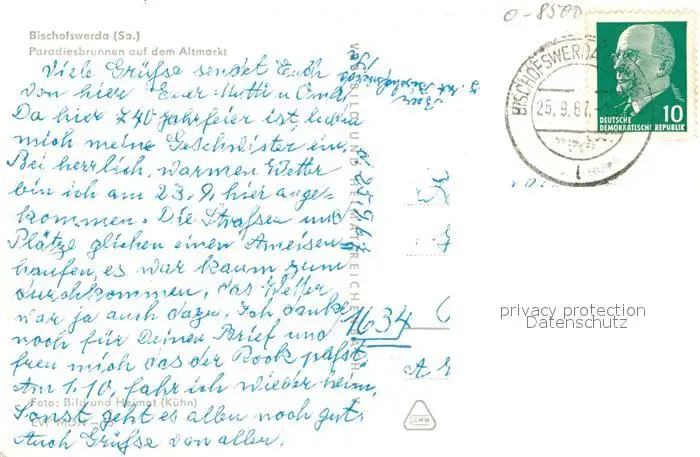 Bischofswerda (Sa.)
Paradiesbrunnen auf dem Altmarkt
Viele Grüße sendet Euch
von hier Euer Mutti u Oma
Da hier 740 jahrfeier ist, luden
mich meine Geschwister ein.
Bei herrlich, warmen Wetter
bin ich am 23.9. hier ange-
kommen. Die Straßen und
Plätze glichen einen Ameisen-
haufen, es war kaum zum
durchkommen, das Wetter
war ja auch dazu. Ich danke
noch für Deinen Brief und
freu mich das der Rock paßt.
Am 1.10. fahr ich wieder heim,
Sonst geht es allen noch gut.
Auch Grüße von allen.
Foto: Bild und Heimat (Kühn)
VEB BILD UND HEIMAT REICHENBACH
d. 25.9.67
1634
0-8500
BISCHOFSWERDA
25.9.67
10
DEUTSCHE
DEMOKRATISCHE REPUBLIK
privacy protection
Datenschutz